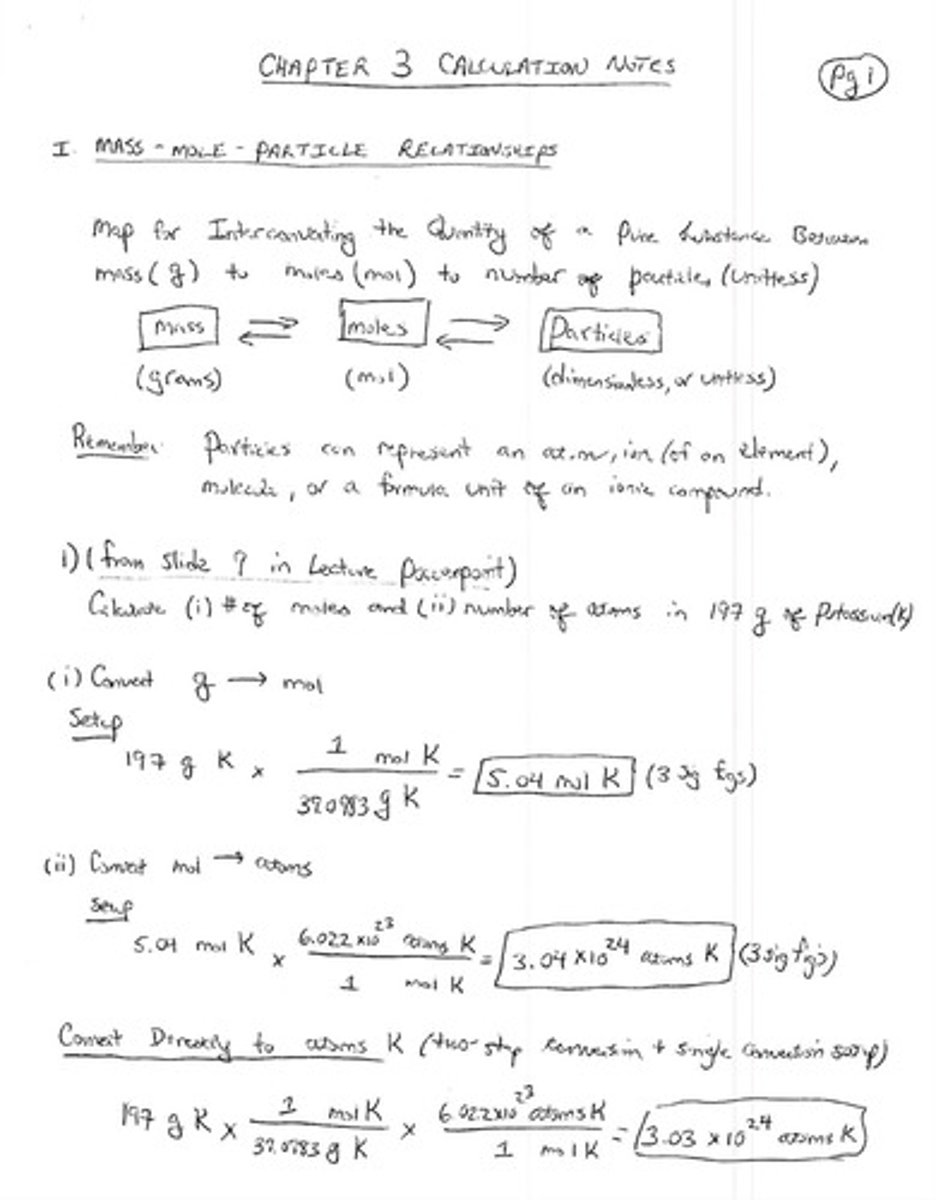 CHAPTER 3 CALCULATION NOTES
Pg 1
I. MASS - MOLE - PARTICLE RELATIONSHIPS
Map for Interconverting the Quantity of a Pure Substance Between
mass (g) to moles (mol) to number of particles (unitless)
mass ⇌ moles ⇌ Particles
(grams) (mol) (dimensionless, or unitless)
Remember: Particles can represent an atom, ion (of an element),
molecule, or a formula unit of an ionic compound.
1) (from slide 9 in Lecture Powerpoint)
Calculate (i) # of moles and (ii) number of atoms in 197 g of Potassium (K)
(i) Convert g → mol
Setup
197 g K × 1 mol K / g K = 5.04 mol K (3 sig figs)
(ii) Convert mol → atoms
Setup
5.04 mol K × 6.022 × 10^23 atoms K / 1 mol K = 3.04 × 10^24 atoms K (3 sig figs)
Convert Directly to atoms K (two-step conversion + single conversion setup)
197 g K × 1 mol K / g K × 6.022 × 10^23 atoms K / 1 mol K = 3.03 × 10^24 atoms K